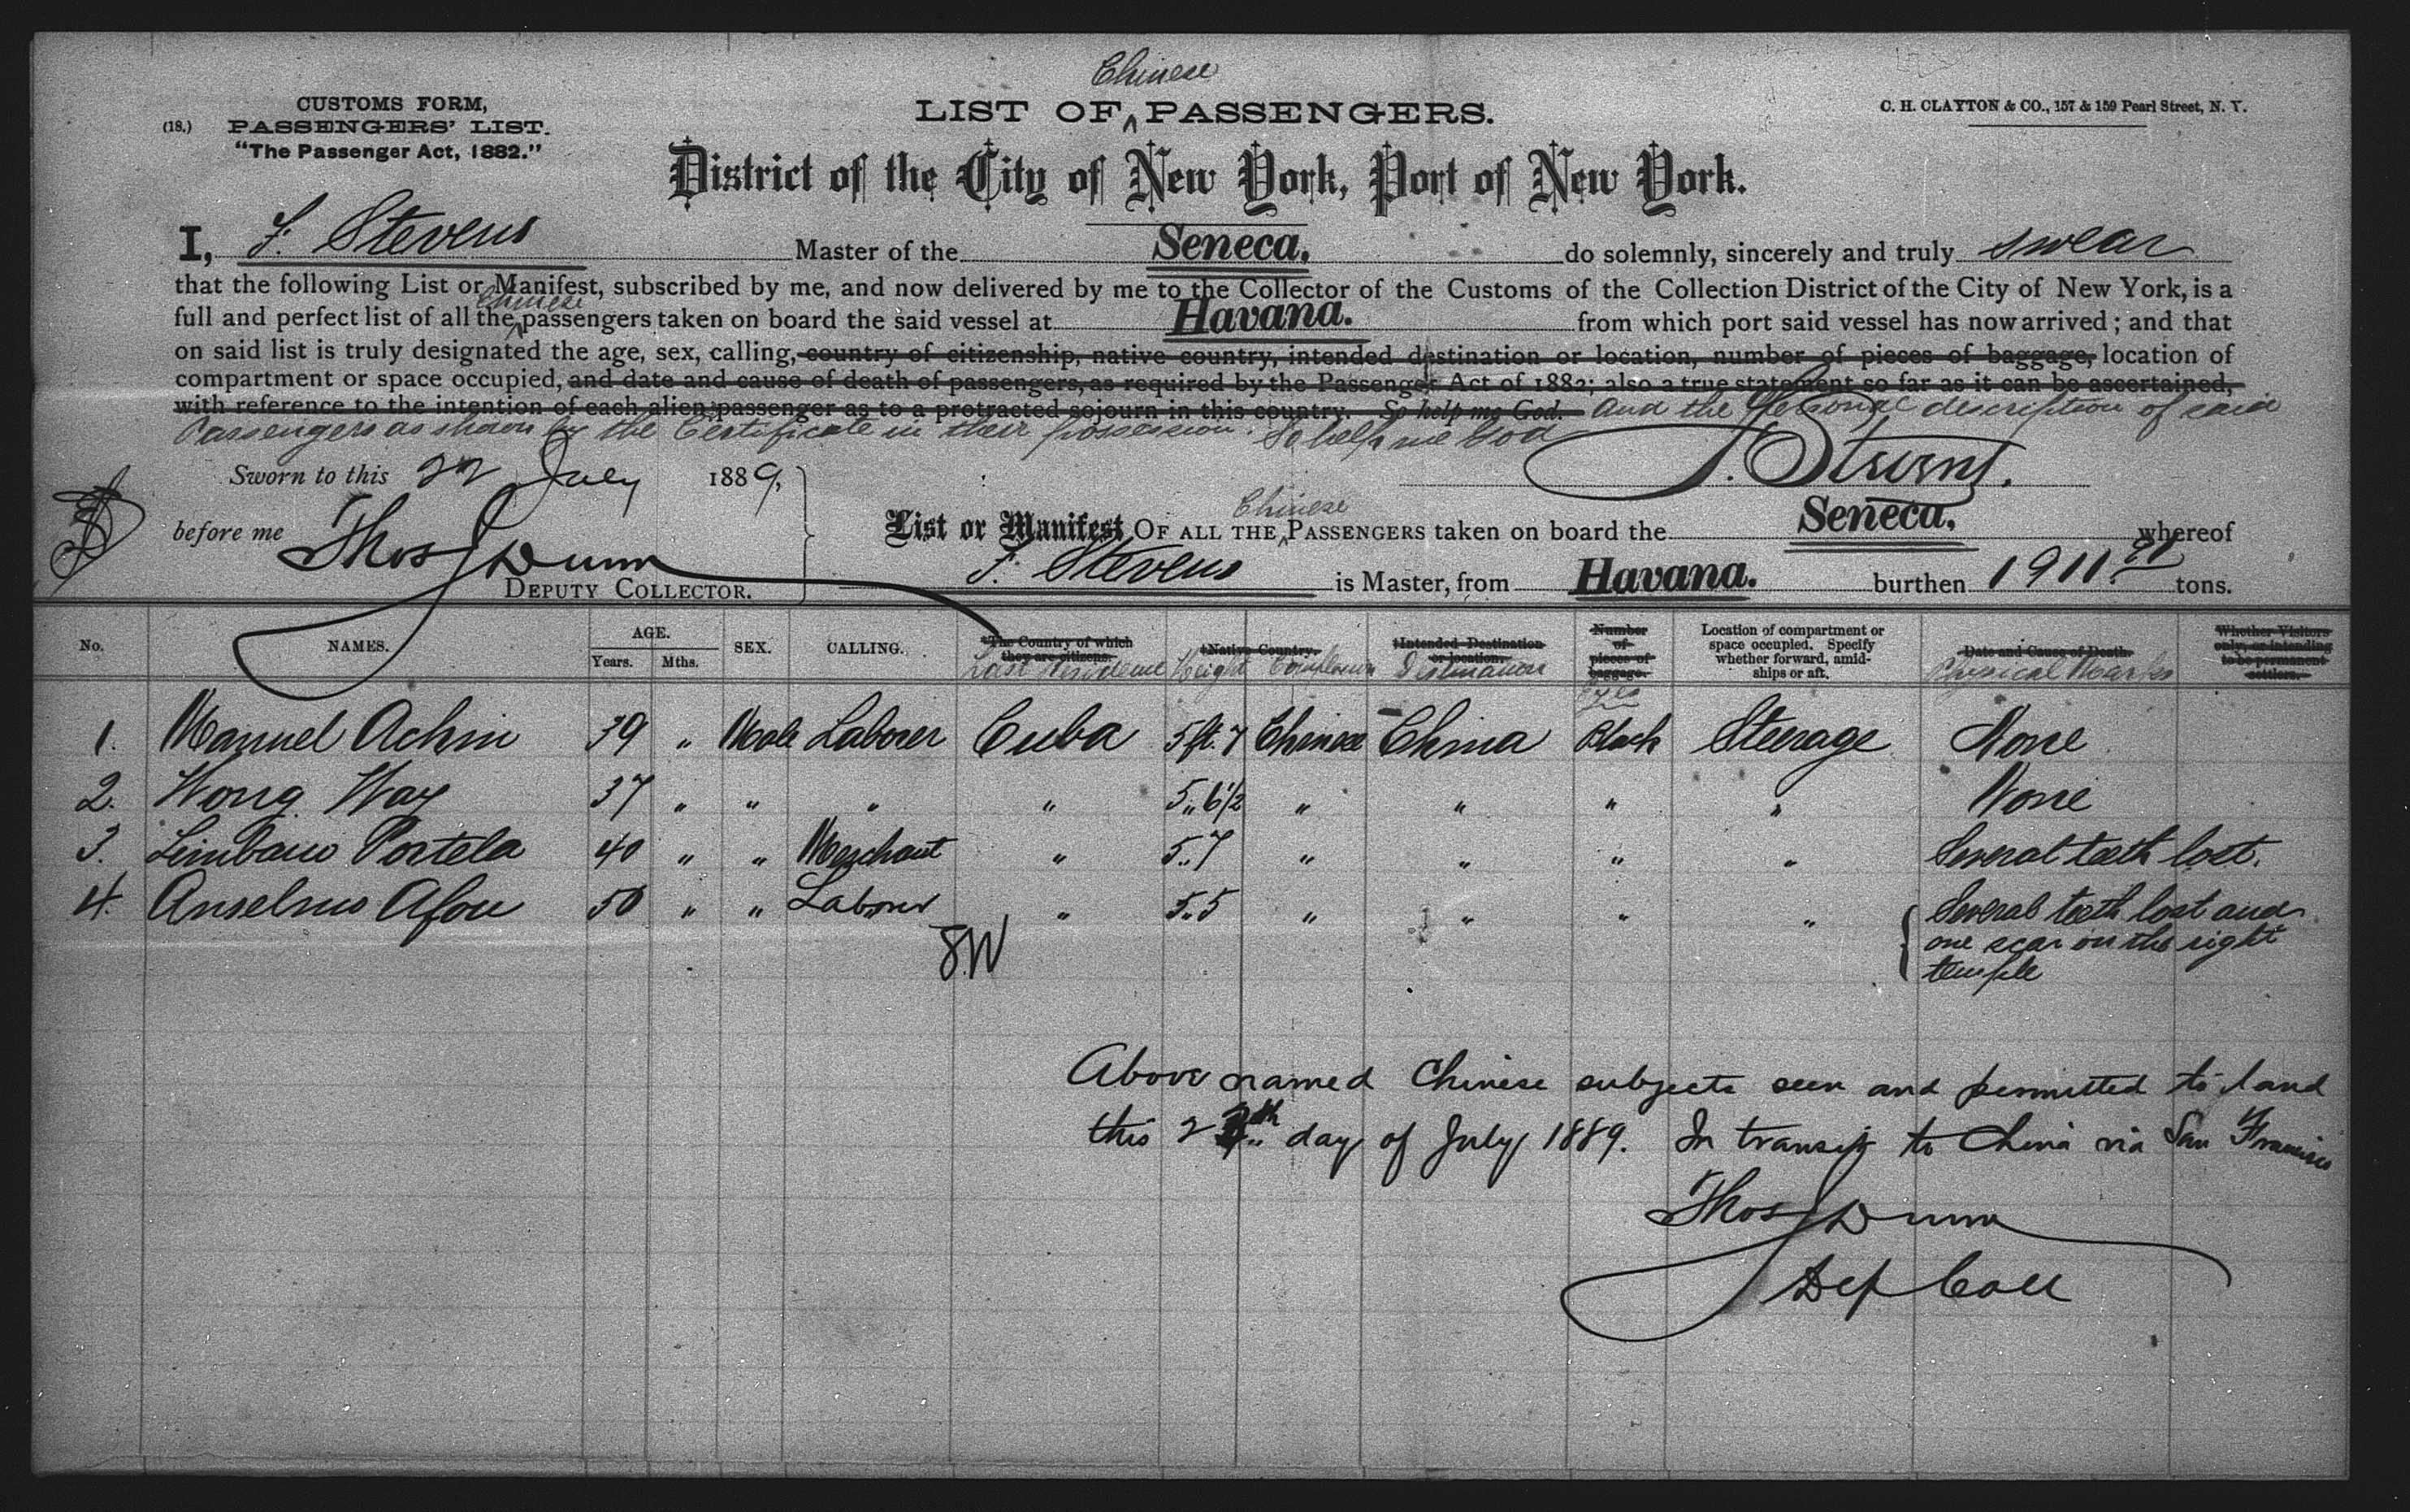 Chinese
CUSTOMS FORM,
(18.) PASSENGERS' LIST.
"The Passenger Act, 1882."
LIST OF ^ PASSENGERS.
C. H. CLAYTON & CO., 157 & 159 Pearl Street, N. Y.
District of the City of New York, Port of New York.
I, F. Stevens Master of the Seneca. do solemnly, sincerely and truly swear
that the following List or Manifest, subscribed by me, and now delivered by me to the Collector of the Customs of the Collection District of the City of New York, is a
Chinese
full and perfect list of all the ^ passengers taken on board the said vessel at Havana. from which port said vessel has now arrived; and that
on said list is truly designated the age, sex, calling, country of citizenship, native country, intended destination or location, number of pieces of baggage, location of
compartment or space occupied, and date and cause of death of passengers, as required by the Passenger Act of 1882; also a true statement so far as it can be ascertained,
with reference to the intention of each alien passenger as to a protracted sojourn in this country. So help me God. And the Personal description of said
Passengers as shown by the Certificate in their possession. So help me God
Sworn to this 22 July 1889,
F. Stevens.
before me Thos J Dunn
DEPUTY COLLECTOR.
Chinese
List or Manifest OF ALL THE ^ PASSENGERS taken on board the Seneca. whereof
F. Stevens is Master, from Havana. burthen 1911 91 tons.
No. NAMES. AGE. Years. Mths. SEX. CALLING. *The Country of which they are citizens. Last Residence *Native Country. Height Complexion *Intended Destination or location. Destination Number of pieces of baggage. Eyes Location of compartment or space occupied. Specify whether forward, amidships or aft. Date and Cause of Death. Physical Marks Whether Visitors only, or intending to be permanent settlers.
1. Manuel Achin 39 " Male Laborer Cuba 5 ft. 7 Chinese China Black Steerage None
2. Wong Way 37 " " " " 5 " 6 1/2 " " " " None
3. Limbano Portela 40 " " Merchant " 5 " 7 " " " " Several teeth lost.
4. Anselmo Afou 50 " " Laborer " 5 " 5 " " " " Several teeth lost and
one scar on the right
temple
Above named Chinese subjects seen and permitted to land
this day of July 1889. In transit to China via San Francisco
Thos J Dunn
Dep Coll